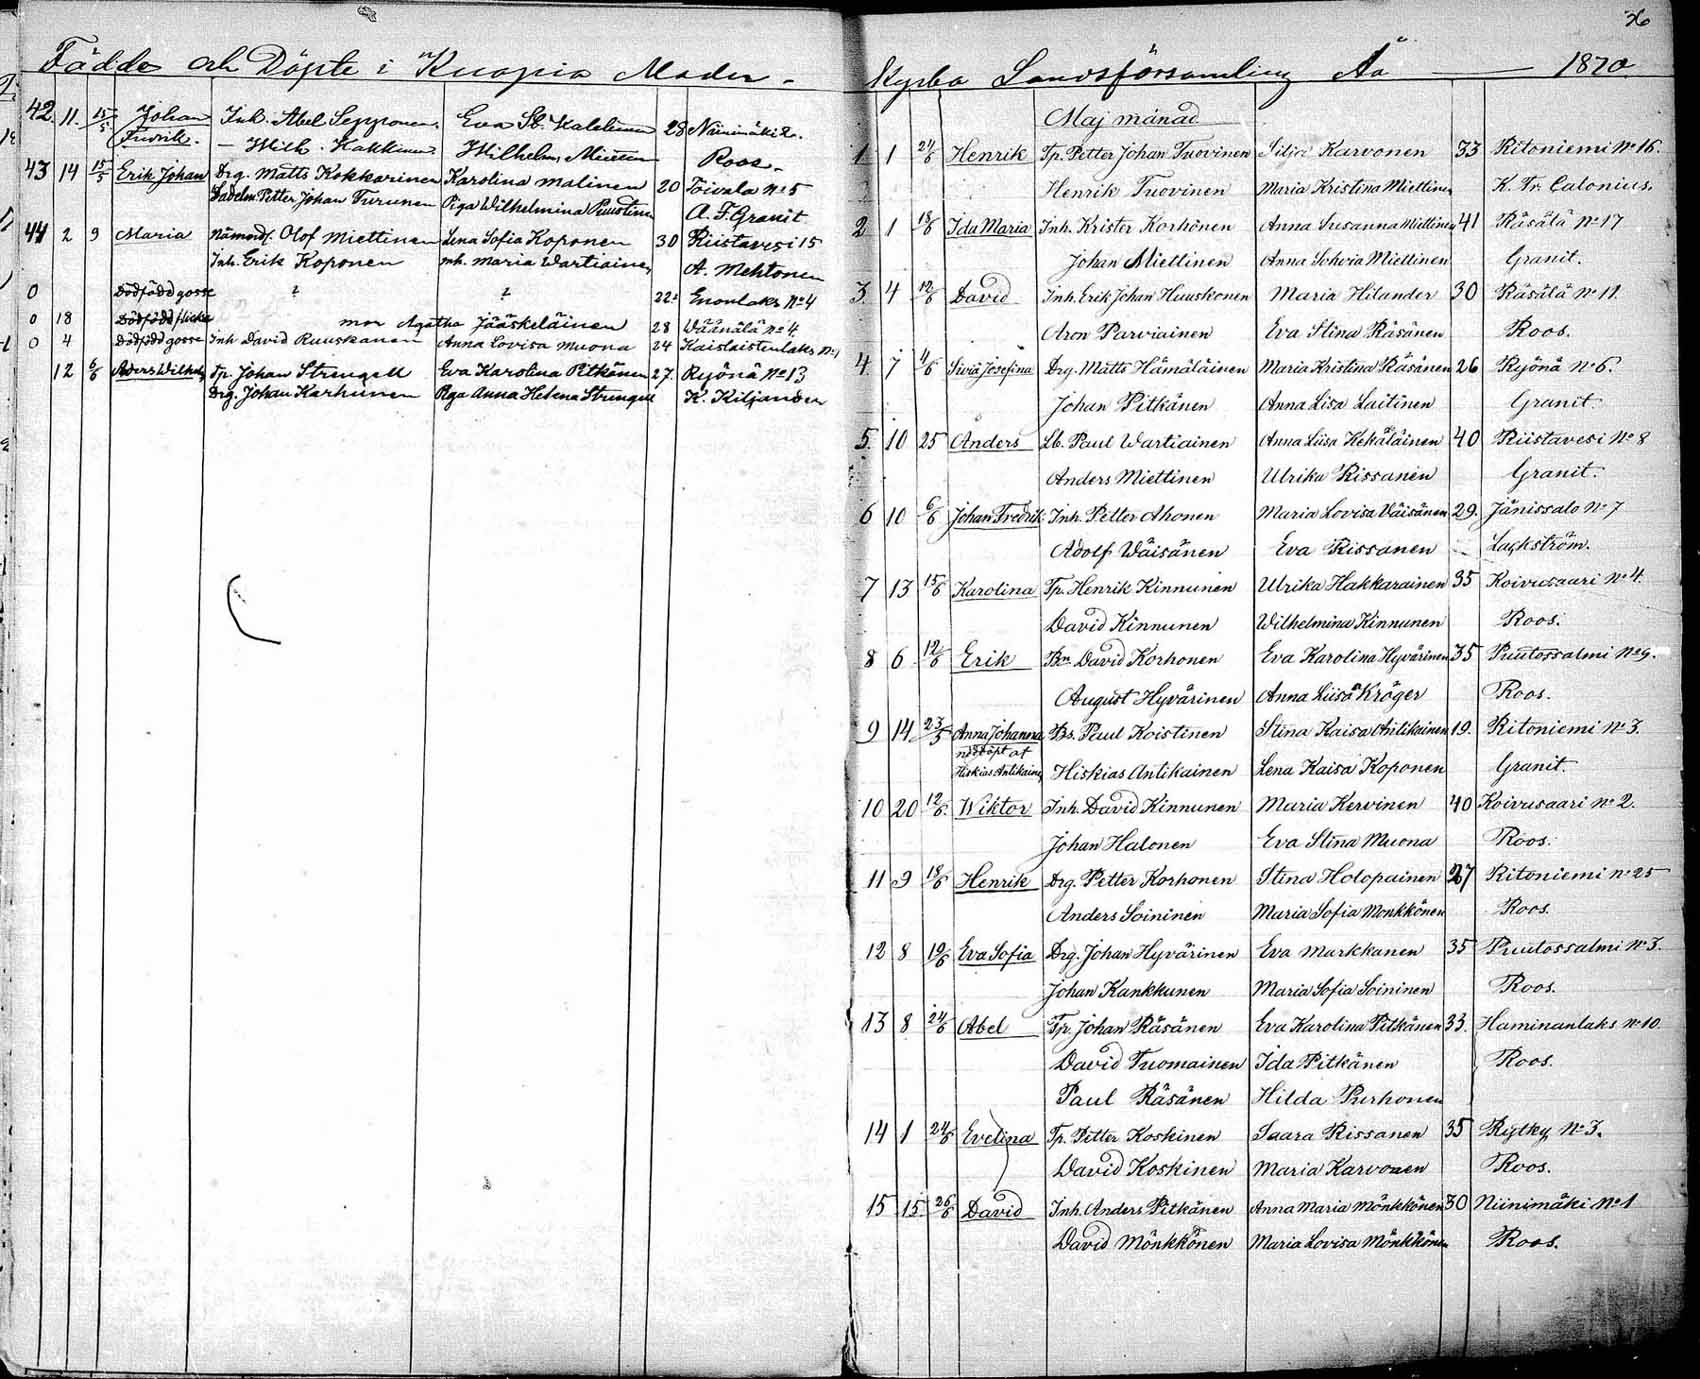 Födde och Döpte i Kuopio Moder-
42. 11. 15/5 Johan Inh. Abel Sepponen. Eva St. 28 Niinimäki 2.
Fredrik. - Wilh. Kakkinen Wilhelm. Roos.
43 14 15/5 Erik Johan Drg. Matts Kokkarinen Karolina Malinen 20 Toivala No 5
Petter Johan Turunen Piga Wilhelmina Puustinen A. F. Granit
44 2 9 Maria Nämnd. Olof Miettinen Lena Sofia Koponen 30 Riistavesi 15
Inh. Erik Koponen mh. Maria Wartiainen A. Mehtonen
0 Dödfödd gosse ? ? 22 Enonlaks No 4
0 18 Dödfödd flicka mor Agatha Jääskeläinen 28 Wäänälä No 4
0 4 Dödfödd gosse Inh David Ruuskanen Anna Lovisa Muona 24 Kaislaistenlaks No 1
12 6/6 Anders Wilhelm Tp. Johan Strengell Eva Karolina Pitkänen 27. Ryönä No 13
Drg. Johan Karhunen Pga Anna Helena Strengell K. Kiljander
26
kyrko Landsförsamling År 1870
Maj månad
1 1 24/6 Henrik Tp. Petter Johan Tuovinen Silja Karvonen 33 Ritoniemi No 16.
Henrik Tuovinen Maria Kristina Miettinen K. Fr. Calonius.
2 1 18/6 Ida Maria Inh. Krister Korhonen Anna Susanna Miettinen 41 Räsälä No 17
Johan Miettinen Anna Sohvia Miettinen Granit.
3. 4 12/6 David Inh. Erik Johan Huuskonen Maria Hilander 30 Räsälä No 11.
Aron Parviainen Eva Stina Räsänen Roos.
4. 7 4/6 Siviä Josefina Drg. Matts Hämäläinen Maria Kristina Räsänen 26 Ryönä No 6.
Johan Pitkänen Anna Lisa Laitinen Granit.
5. 10 25 Anders Lb. Paul Wartiainen Anna Liisa Kekäläinen 40 Riistavesi No 8
Anders Miettinen Ulrika Rissanen Granit.
6 10 6/6 Johan Fredrik Inh. Petter Ahonen Maria Lovisa Väisänen 29. Jänissalo No 7
Adolf Wäisänen Eva Rissanen Lackström.
7 13 15/6 Karolina Tp. Henrik Kinnunen Ulrika Hakkarainen 35 Koivusaari No 4.
David Kinnunen Wilhelmina Kinnunen Roos.
8 6 12/6 Erik Bn David Korhonen Eva Karolina Hyvärinen 35 Puutossalmi No 9.
August Hyvärinen Anna Liisa Kröger Roos.
9 14 23/5 Anna Johanna Bs. Paul Koistinen Stina Kaisa Antikainen 19. Ritoniemi No 3.
nöddöpt af
Hiskias Antikainen Hiskias Antikainen Lena Kaisa Koponen Granit.
10 20 12/6. Wiktor Inh. David Kinnunen Maria Kervinen 40 Koivusaari No 2.
Johan Halonen Eva Stina Muona Roos.
11 9 18/6 Henrik Drg. Petter Korhonen Stina Holopainen 27 Ritoniemi No 25
Anders Soininen Maria Sofia Monkkönen Roos.
12 8 19/6 Eva Sofia Drg. Johan Hyvärinen Eva Markkanen 35 Puutossalmi No 3.
Johan Kankkunen Maria Sofia Soininen Roos.
13 8 24/6 Abel Tp. Johan Räsänen Eva Karolina Pitkänen 33. Haminanlaks No 10
David Tuomainen Ida Pitkänen Roos.
Paul Räsänen Hilda Purhonen
14 1 24/6 Evelina Tp. Petter Koskinen Saara Rissanen 35 Rytky No 3.
David Koskinen Maria Karvonen Roos.
15 15 26/6 David Inh. Anders Pitkänen Anna Maria Mönkkönen 30 Niinimäki No 1
David Mönkkönen Maria Lovisa Mönkkönen Roos.